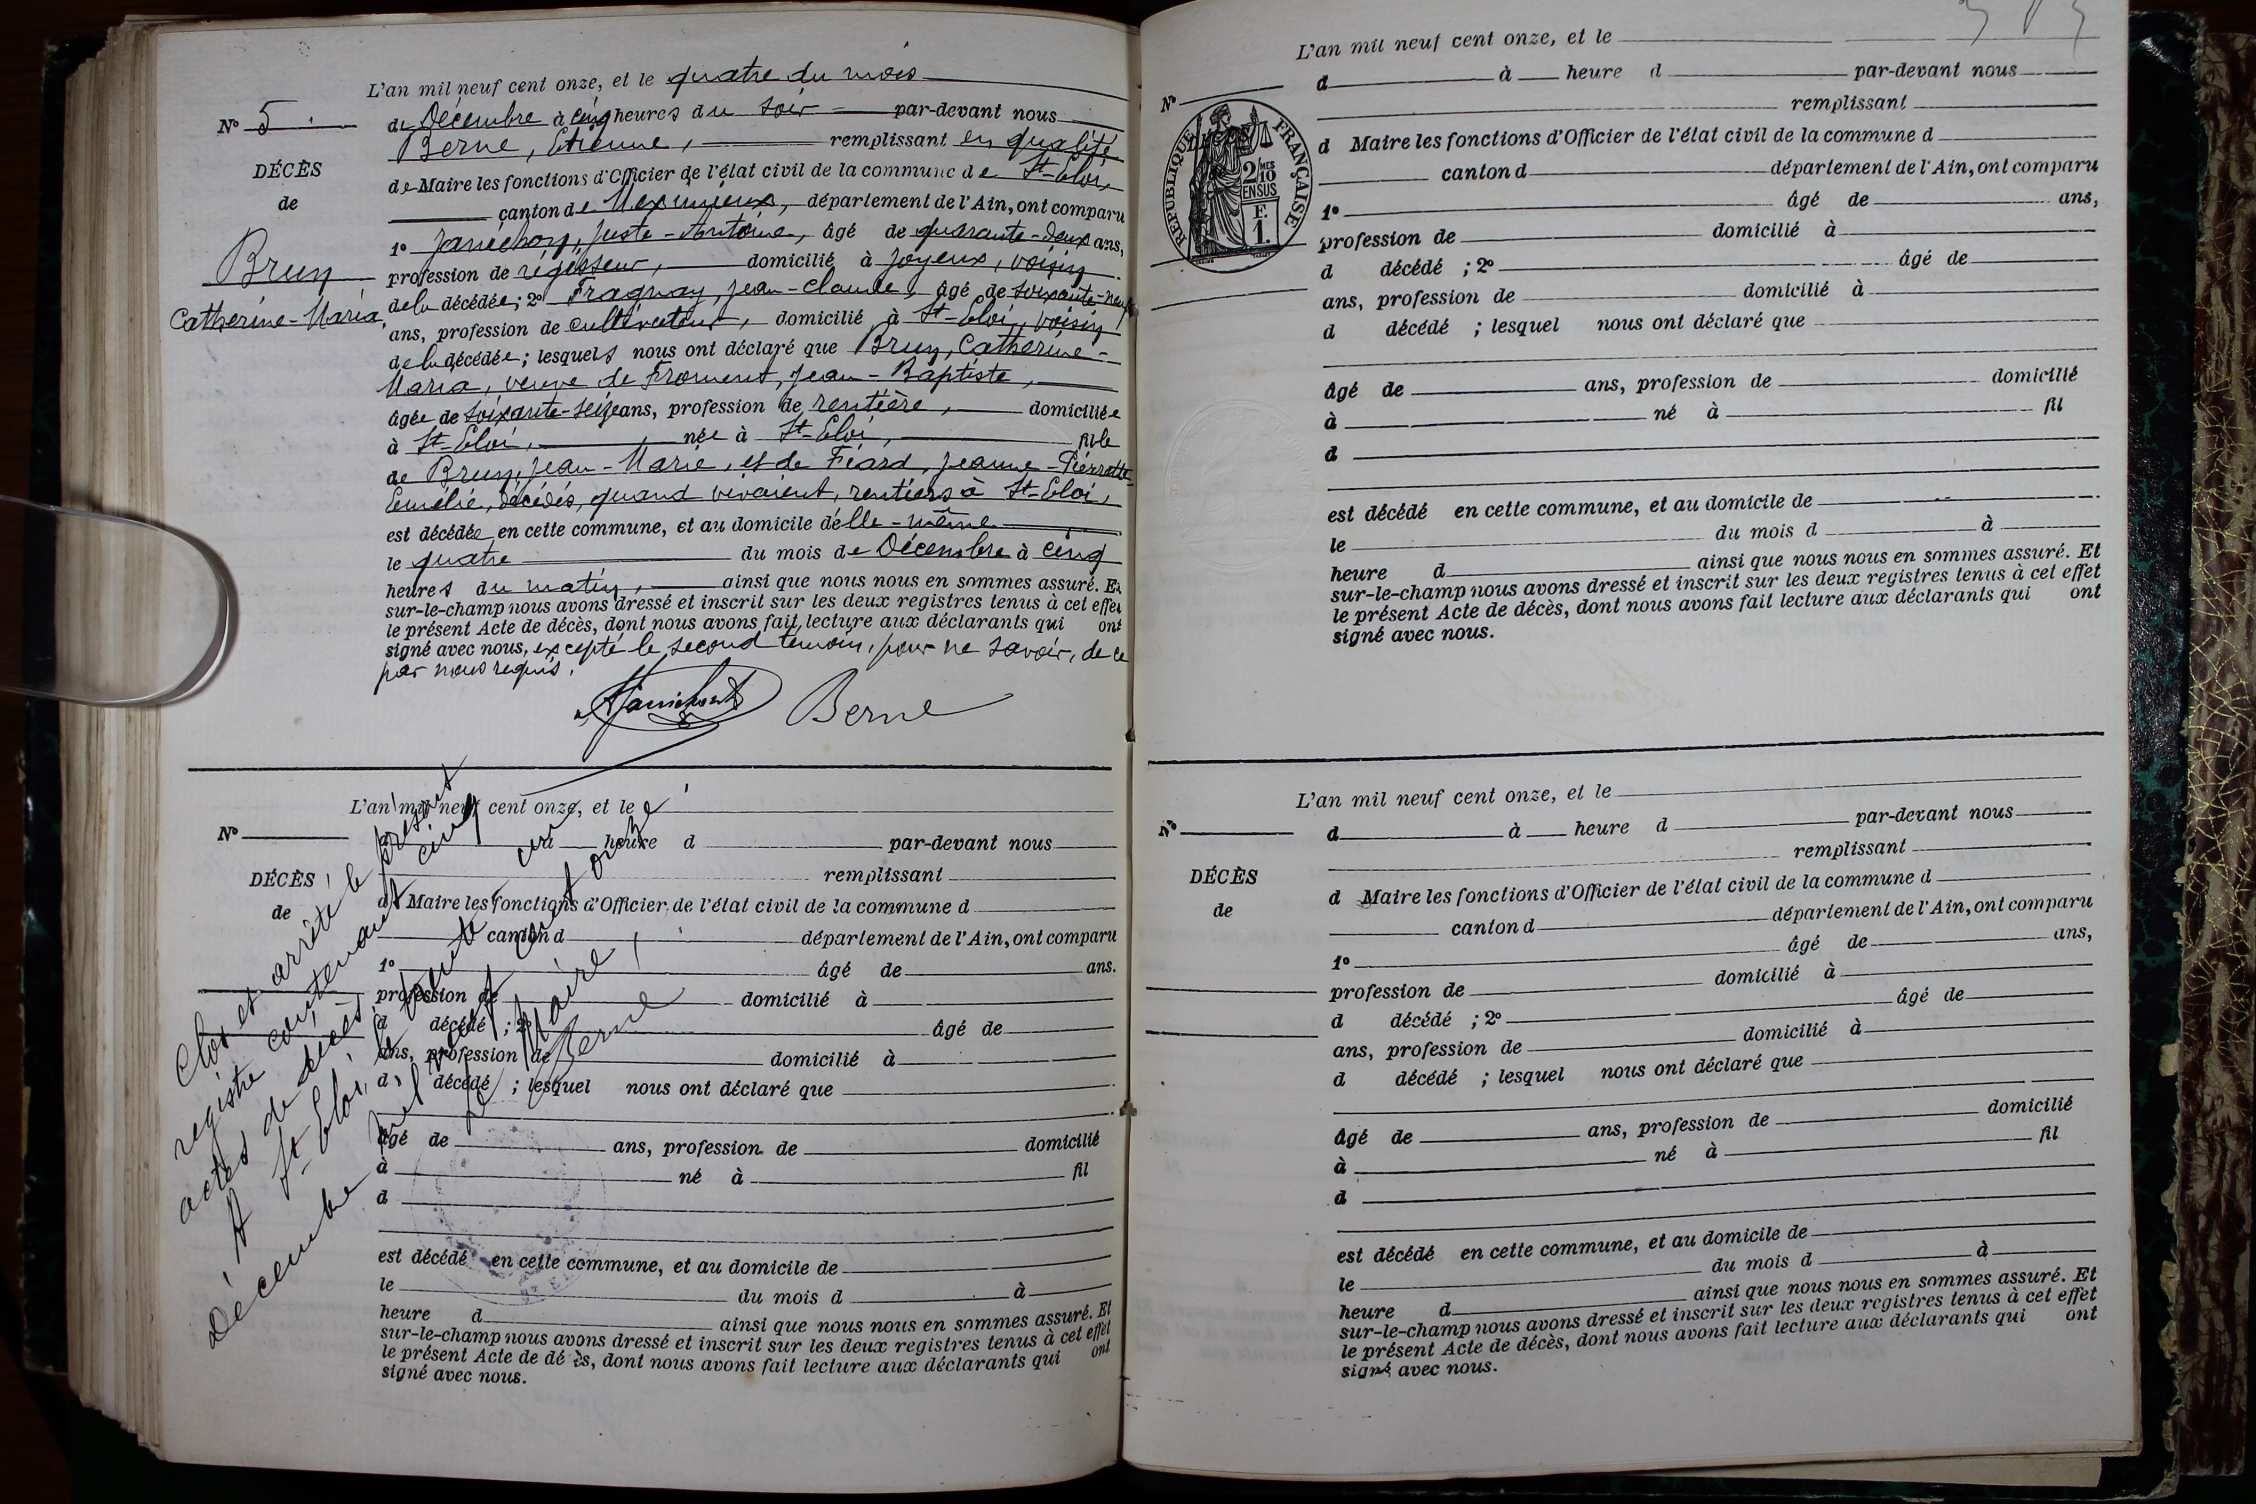 L'an mil neuf cent onze, et le quatre du mois
de Décembre à cinq heures du soir par-devant nous
Berne, Etienne, remplissant en qualité
de Maire les fonctions d'Officier de l'état civil de la commune de St-Eloi,
canton de Meximieux, département de l'Ain, ont comparu
1° Janichon, Juste-Antoine, âgé de quarante-deux ans,
profession de régisseur, domicilié à Joyeux, voisin
de la décédée; 2° Fragnay, Jean-Claude, âgé de soixante-neuf
ans, profession de cultivateur, domicilié à St-Eloi, voisin
de la décédée; lesquels nous ont déclaré que Brun, Catherine-
Maria, veuve de Froment, Jean-Baptiste,
âgée de soixante-seize ans, profession de rentière, domiciliée
à St-Eloi, née à St-Eloi, fille
de Brun, Jean-Marie, et de Féard, Jeanne-Pierrette-
Emélie, décédés, quand vivaient, rentiers à St-Eloi,
est décédée en cette commune, et au domicile d'elle-même
le quatre du mois de Décembre à cinq
heures du matin, ainsi que nous nous en sommes assuré. Et
sur-le-champ nous avons dressé et inscrit sur les deux registres tenus à cet effet
le présent Acte de décès, dont nous avons fait lecture aux déclarants qui ont
signé avec nous, excepté le second témoin, pour ne savoir, de ce
par nous requis.
Berne
N° 5
DÉCÈS
de
Brun
Catherine-Maria
L'an mil neuf cent onze, et le
à heure d par-devant nous
remplissant
d Maire les fonctions d'Officier de l'état civil de la commune d
canton d département de l'Ain, ont comparu
1° âgé de ans.
profession de domicilié à
d décédé ; 2° âgé de
ans, profession de domicilié à
d décédé ; lesquel nous ont déclaré que
âgé de ans, profession de domicilié
à né à fil
d
est décédé en cette commune, et au domicile de
le du mois d à
heure d ainsi que nous nous en sommes assuré. Et
sur-le-champ nous avons dressé et inscrit sur les deux registres tenus à cet effet
le présent Acte de décès, dont nous avons fait lecture aux déclarants qui ont
signé avec nous.
N°
DÉCÈS
de
Clos et arrêté le présent
registre contenant cinq
actes de décès
A St-Eloi, le trente un
Décembre mil neuf cent onze
Le Maire,
Berne
L'an mil neuf cent onze, et le
d à heure d par-devant nous
remplissant
d Maire les fonctions d'Officier de l'état civil de la commune d
canton d département de l'Ain, ont comparu
1° âgé de ans,
profession de domicilié à
d décédé ; 2° âgé de
ans, profession de domicilié à
d décédé ; lesquel nous ont déclaré que
âgé de ans, profession de domicilié
à né à fil
d
est décédé en cette commune, et au domicile de
le du mois d à
heure d ainsi que nous nous en sommes assuré. Et
sur-le-champ nous avons dressé et inscrit sur les deux registres tenus à cet effet
le présent Acte de décès, dont nous avons fait lecture aux déclarants qui ont
signé avec nous.
N°
RÉPUBLIQUE FRANÇAISE
2/MES
10
EN SUS
F.
1.
L'an mil neuf cent onze, et le
d à heure d par-devant nous
remplissant
d Maire les fonctions d'Officier de l'état civil de la commune d
canton d département de l'Ain, ont comparu
1° âgé de ans,
profession de domicilié à
d décédé ; 2° âgé de
ans, profession de domicilié à
d décédé ; lesquel nous ont déclaré que
âgé de ans, profession de domicilié
à né à fil
d
est décédé en cette commune, et au domicile de
le du mois d à
heure d ainsi que nous nous en sommes assuré. Et
sur-le-champ nous avons dressé et inscrit sur les deux registres tenus à cet effet
le présent Acte de décès, dont nous avons fait lecture aux déclarants qui ont
signé avec nous.
N°
DÉCÈS
de